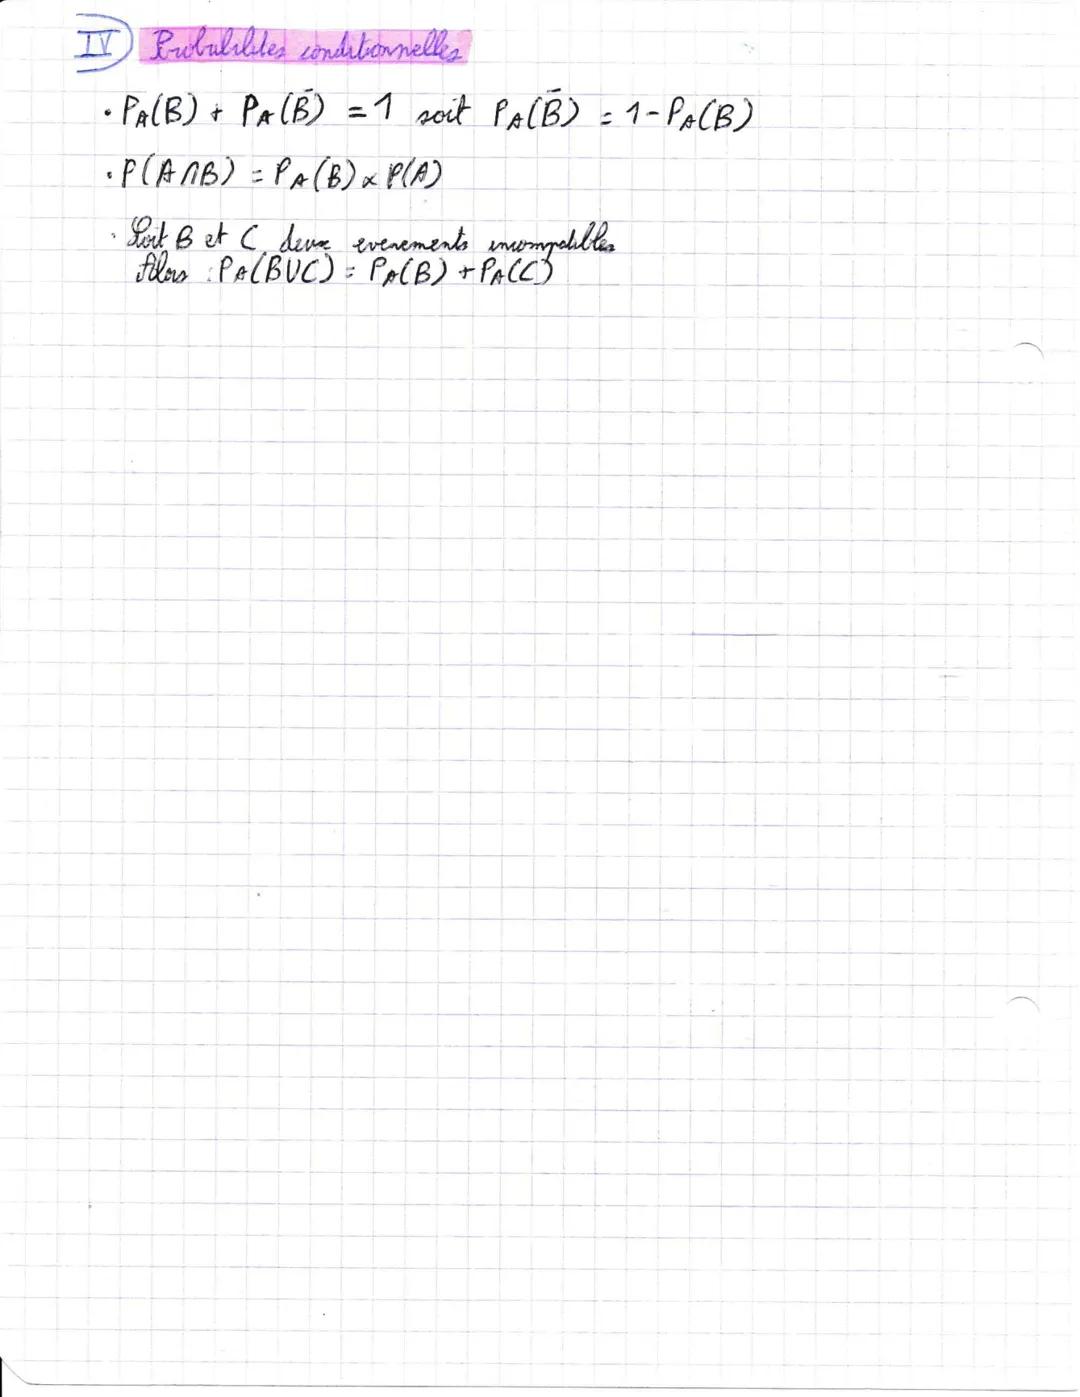 IV) Probabilités conditionnelles
• PA(B) + PA(B̄) = 1 soit PA(B̄) = 1 - PA(B)
• P(A∩B) = PA(B) × P(A)
• Soit B et C deux evenements incompatibles
Alors : PA(B∪C) = PA(B) + PA(C)